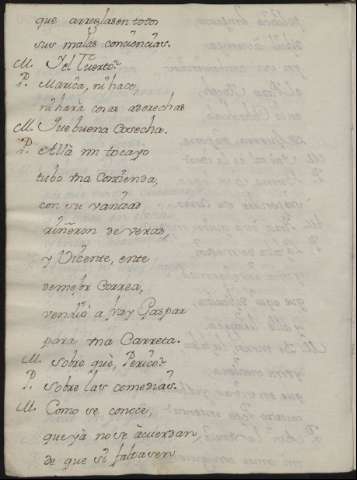 que arreglasen todos
sus malas conciencias.
M. Y el Tuerto?
P. Marica, ni hace,
ni hará cosa a derechas
M. Que buena Cosecha.
P. Allà mi tocayo
tubo una Contienda,
con su vanidad
riñeron de veras,
y Vicente, ente
de mejor Correa,
vendió à fray Gaspar
para una Carreta.
M. Sobre què, Perico?
P. Sobre las comedias.
M. Como se conoce,
que yà no se acuerdan
de que si faltasen